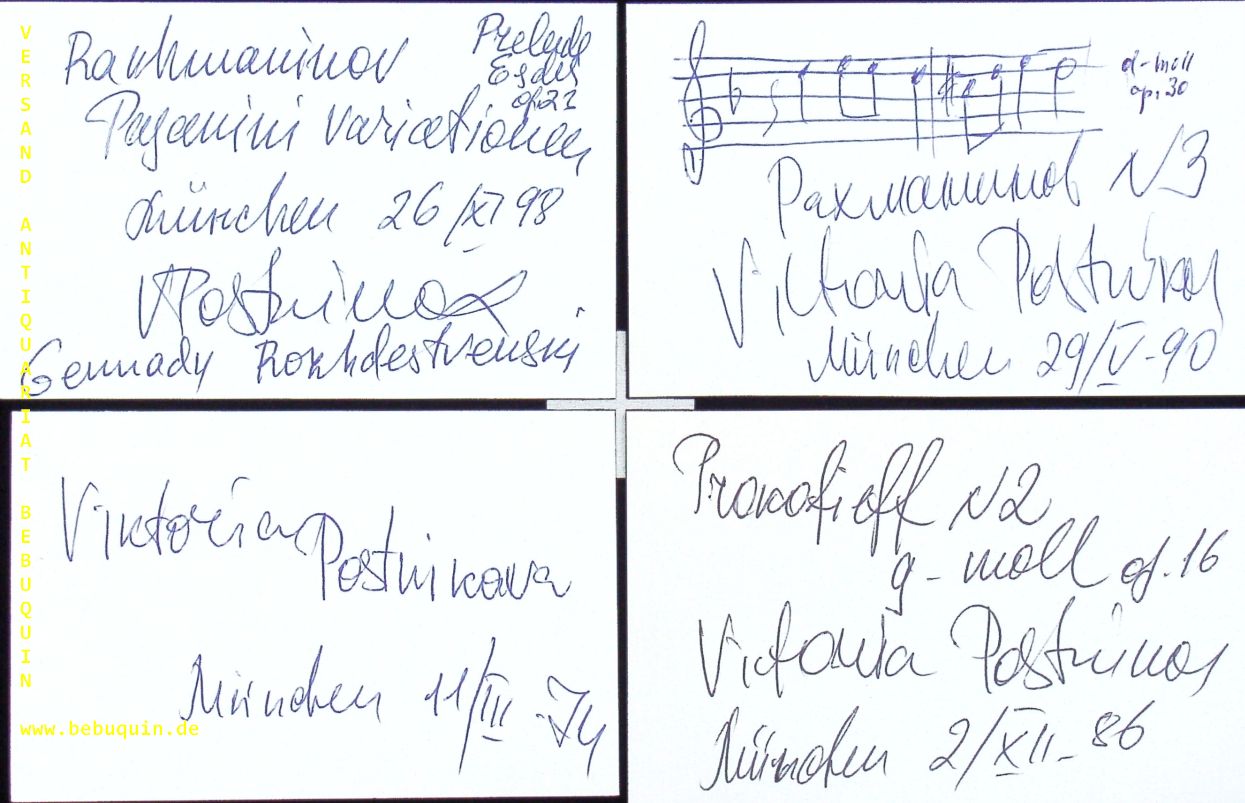 Rachmaninov
Prelude
Es dur
op. 23
Paganini Variationen
München 26/XI 98
VPostnikova
Gennady Rozhdestvenski
d-moll
op. 30
Рахманинов N3
Viktoria Postnikova
München 29/IV-90
Viktoria
Postnikova
München 11/III-74
Prokofieff N2
g-moll op. 16
Victoria Postnikova
München 2/XII-86
VERSAND ANTIQUARIAT BEBUQUIN
www.bebuquin.de